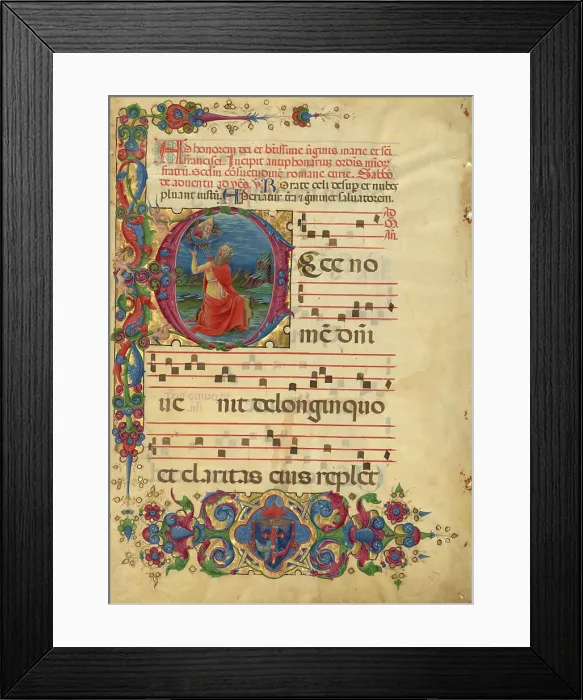 Ad honorem dei et btissime v̄ginis marie et sci
francisci. Incipit antiphonarius ordīs minor
fratrū. Scdm consuetudinē romane curie. Sabbo
de adventu ad vēs. V R Orate celi desup et nubes
pluant iustū. Aperiatur t̄ra et g̃minet salvatorem.
Ad
Mā.
an.
Ecce no
mē dn̄i
ue nit delonginquo
et claritas eius replet